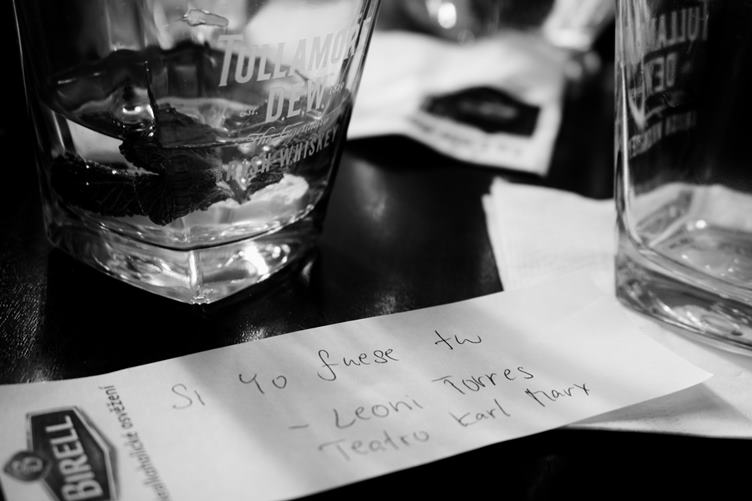 TULLAMORE
D.E.W.
IRISH WHISKEY
TULLAM
D.E.W
Si yo fuese tu
- Leoni Torres
Teatro Karl Marx
BIRELL
nealkoholické osvěžení